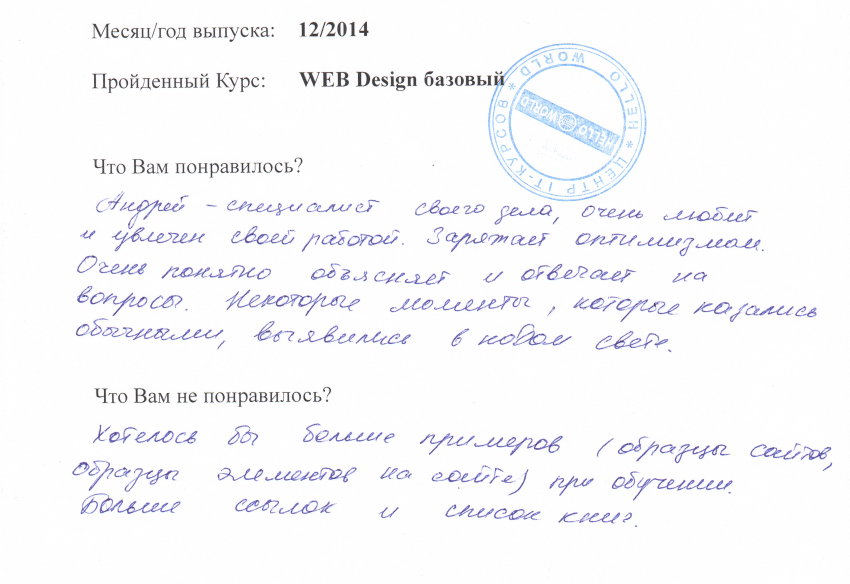 Месяц/год выпуска: 12/2014
Пройденный Курс: WEB Design базовый
ЦЕНТР IT-КУРСОВ * HELLO WORLD *
HELLO WORLD
Что Вам понравилось?
Андрей – специалист своего дела, очень любит
и увлечен своей работой. Заряжает оптимизмом.
Очень понятно объясняет и отвечает на
вопросы. Некоторые моменты, которые казались
обычными, выявились в новом свете.
Что Вам не понравилось?
Хотелось бы больше примеров (образцы сайтов,
образцы элементов на сайте) при обучении.
Больше ссылок и список книг.